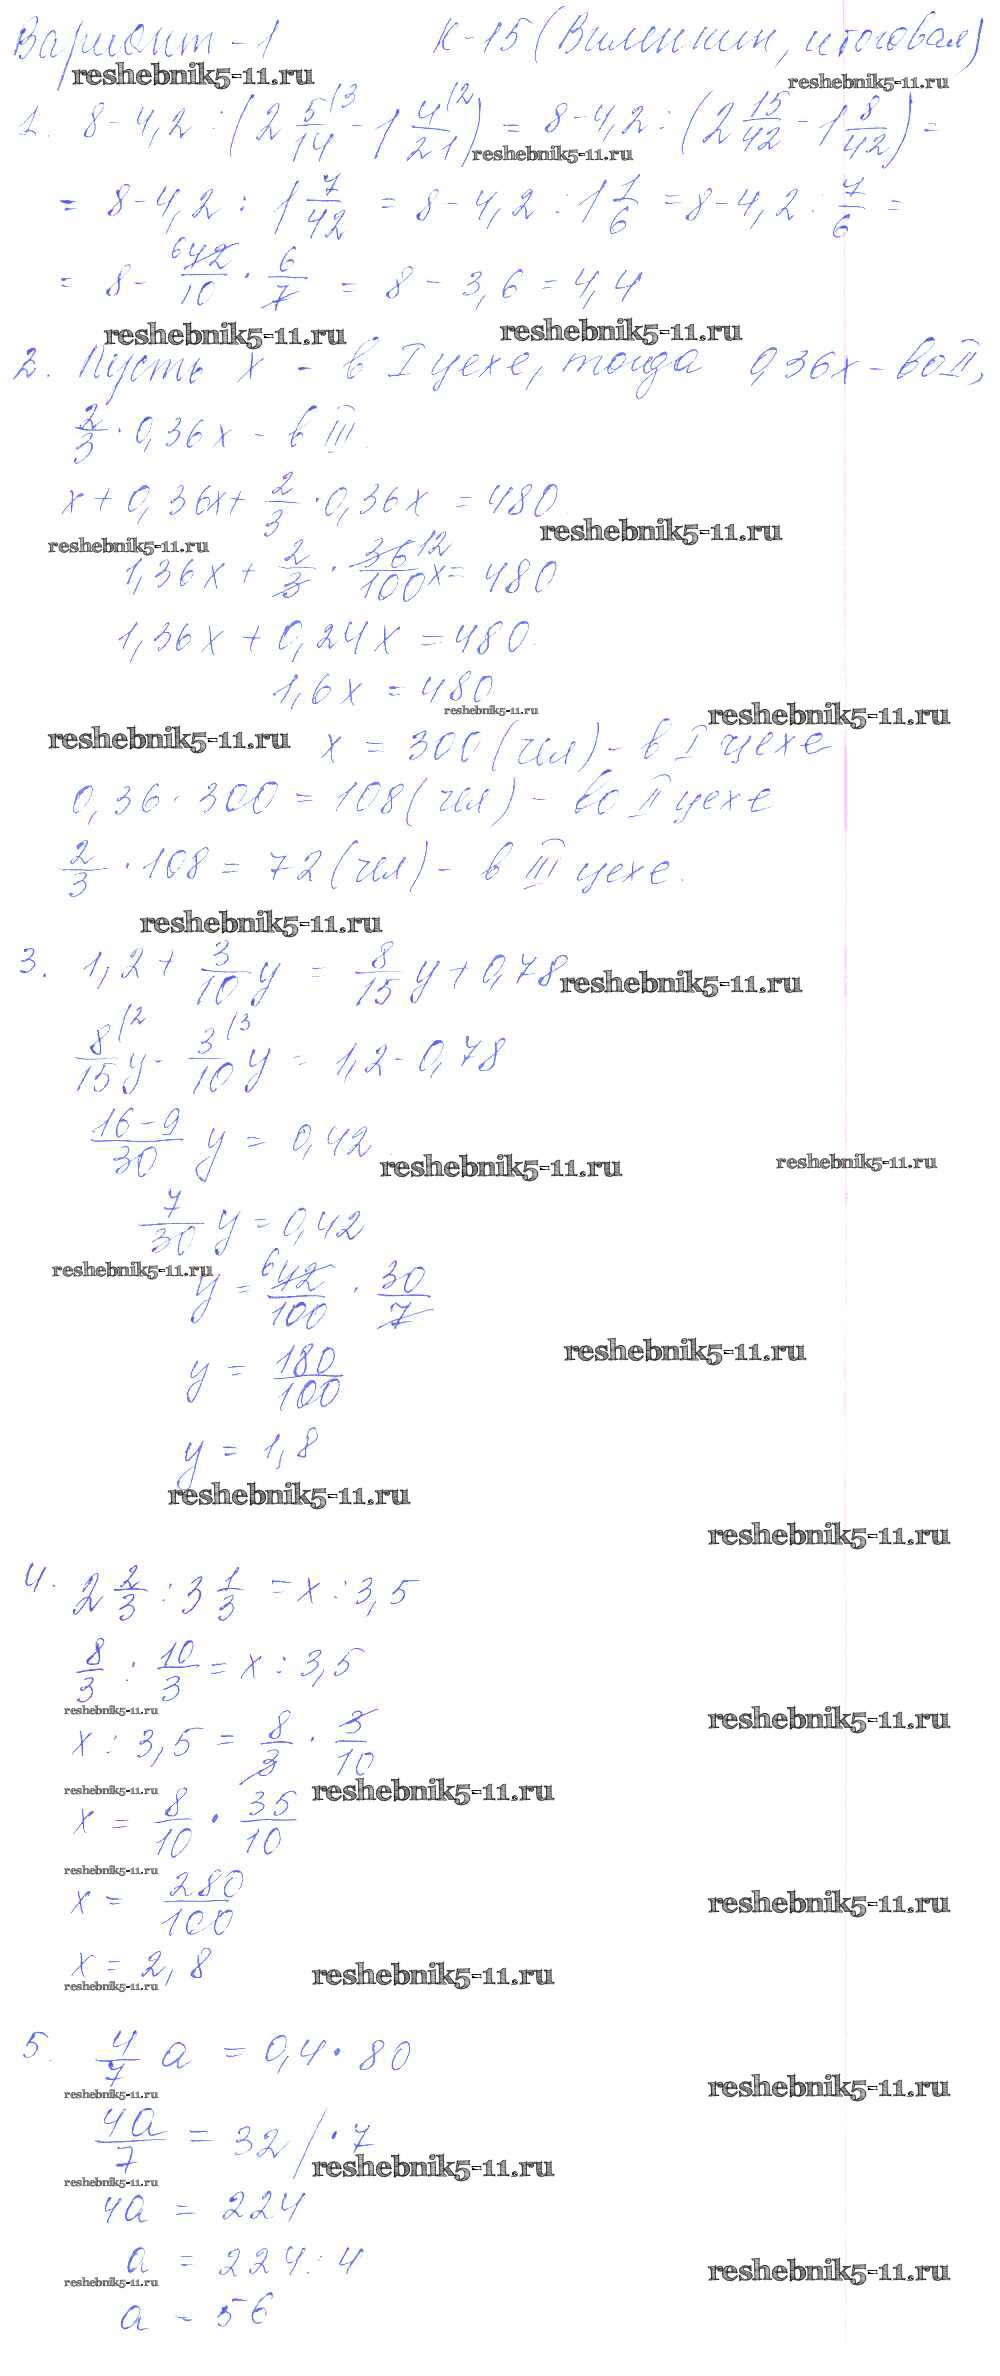 Вариант - 1 К-15 (Виленкин, итоговая)
reshebnik5-11.ru reshebnik5-11.ru
1. 8 - 4,2 : (2 5/14 (3 - 1 4/21 (2) = 8 - 4,2 : (2 15/42 - 1 8/42) =
reshebnik5-11.ru
= 8 - 4,2 : 1 7/42 = 8 - 4,2 : 1 1/6 = 8 - 4,2 : 7/6 =
= 8 - 6 42/10 · 6/7 = 8 - 3,6 = 4,4
reshebnik5-11.ru reshebnik5-11.ru
2. Пусть x - в I цехе, тогда 0,36x - во II,
2/3 · 0,36x - в III.
x + 0,36x + 2/3 · 0,36x = 480
reshebnik5-11.ru reshebnik5-11.ru
1,36x + 2/3 · 36 12/100 x = 480
1,36x + 0,24x = 480.
1,6x = 480
reshebnik5-11.ru reshebnik5-11.ru
reshebnik5-11.ru x = 300 (чел) - в I цехе
0,36 · 300 = 108 (чел) - во II цехе
2/3 · 108 = 72 (чел) - в III цехе.
reshebnik5-11.ru
3. 1,2 + 3/10 y = 8/15 y + 0,78 reshebnik5-11.ru
8/15 (2 y - 3/10 (3 y = 1,2 - 0,78
16-9/30 y = 0,42
reshebnik5-11.ru reshebnik5-11.ru
7/30 y = 0,42
reshebnik5-11.ru
y = 6 42/100 · 30/7
reshebnik5-11.ru
y = 180/100
y = 1,8
reshebnik5-11.ru
reshebnik5-11.ru
4. 2 2/3 : 3 1/3 = x : 3,5
8/3 : 10/3 = x : 3,5
reshebnik5-11.ru reshebnik5-11.ru
x : 3,5 = 8/3 · 3/10
reshebnik5-11.ru reshebnik5-11.ru
x = 8/10 · 35/10
reshebnik5-11.ru
x = 280/100 reshebnik5-11.ru
x = 2,8
reshebnik5-11.ru reshebnik5-11.ru
5. 4/7 a = 0,4 · 80
reshebnik5-11.ru reshebnik5-11.ru
4a/7 = 32 / · 7
reshebnik5-11.ru reshebnik5-11.ru
4a = 224
a = 224 : 4
reshebnik5-11.ru reshebnik5-11.ru
a = 56